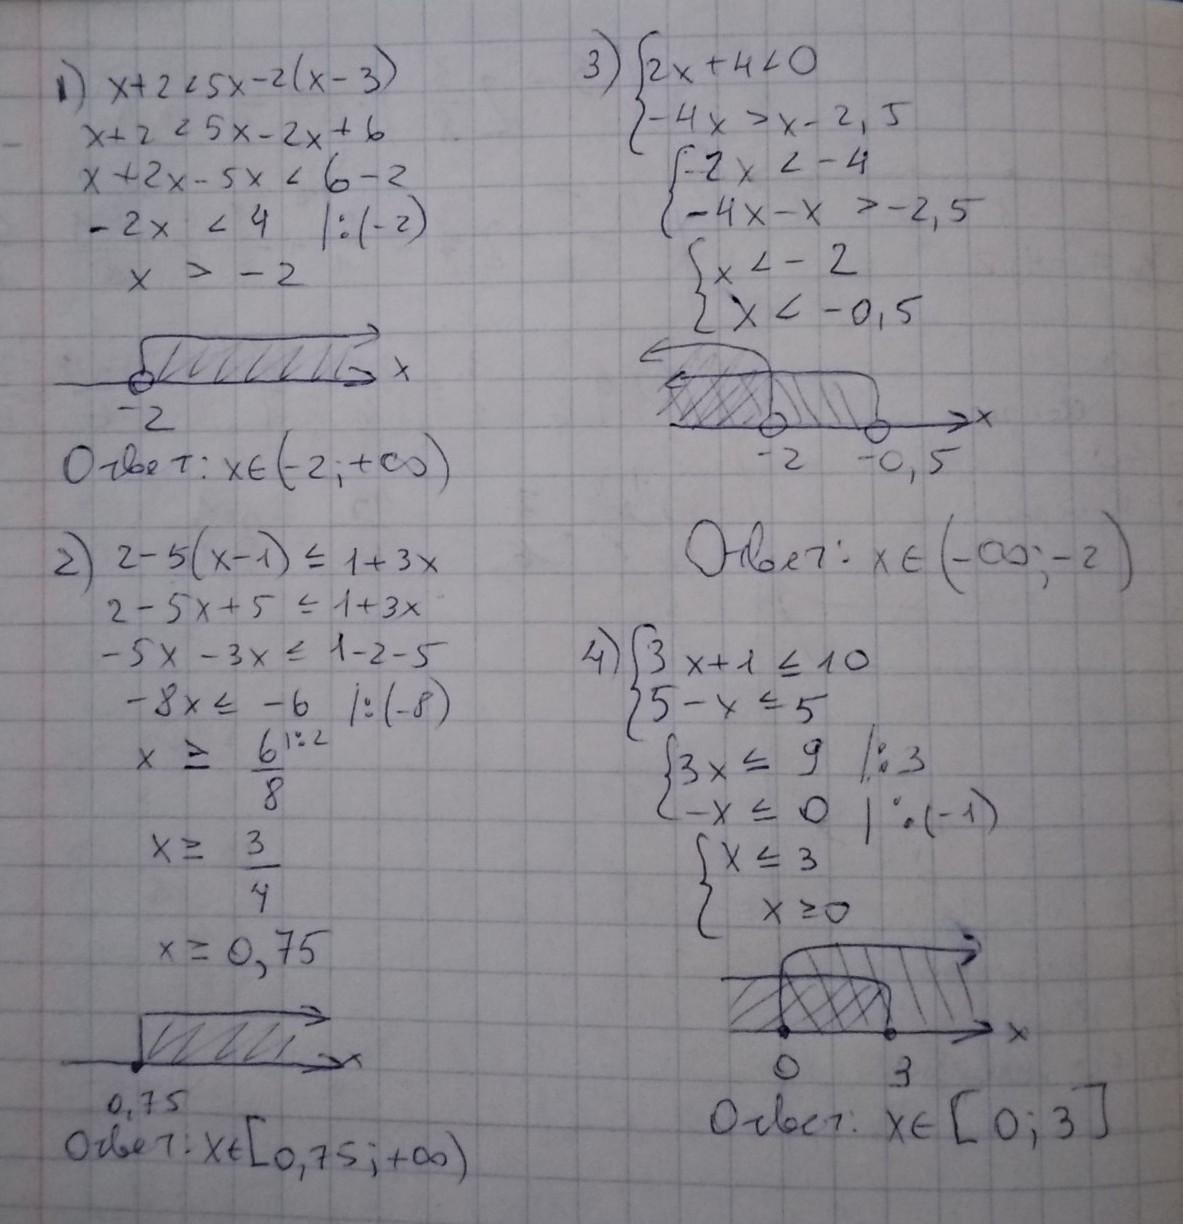 1) x+2<5x-2(x-3)
x+2<5x-2x+6
x+2x-5x<6-2
-2x<4 |:(-2)
x>-2
x
-2
Ответ: x∈(-2;+∞)
2) 2-5(x-1)≤1+3x
2-5x+5≤1+3x
-5x-3x≤1-2-5
-8x≤-6 |:(-8)
x≥6/8 |:2
x≥3/4
x≥0,75
x
0,75
Ответ: x∈[0,75;+∞)
3) {2x+4<0
-4x>x-2,5
{2x<-4
-4x-x>-2,5
{x<-2
x<-0,5
x
-2 -0,5
Ответ: x∈(-∞;-2)
4) {3x+1≤10
5-x≤5
{3x≤9 |:3
-x≤0 |:(-1)
{x≤3
x≥0
x
0 3
Ответ: x∈[0;3]